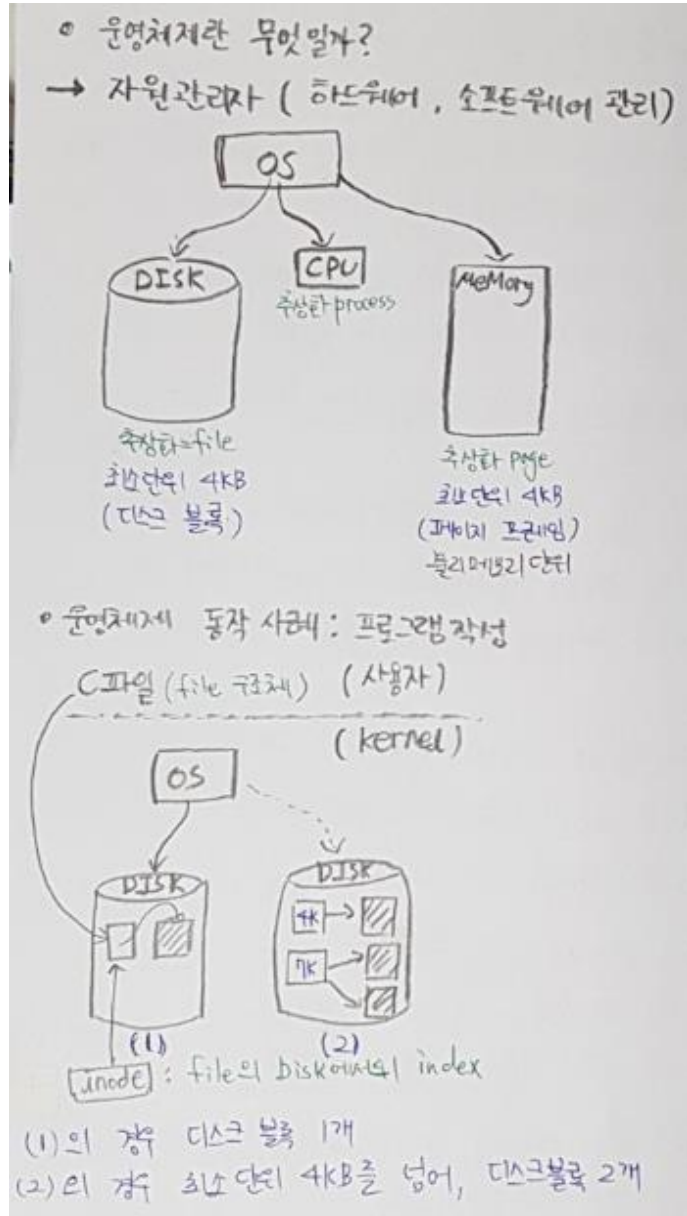 • 운영체제란 무엇일까?
→ 자원관리자 ( 하드웨어, 소프트웨어 관리)
OS
DISK
CPU
MeMory
추상화 process
추상화=file
최소단위 4KB
(디스크 블록)
추상화 page
최소단위 4KB
(페이지 프레임)
물리메모리단위
• 운영체제 동작 사례 : 프로그램 작성
C파일 (file 구조체) (사용자)
(kernel)
OS
DISK
DISK
4K
7K
(1)
(2)
inode : file의 Disk에서의 index
(1)의 경우 디스크 블록 1개
(2)의 경우 최소 단위 4KB를 넘어, 디스크블록 2개